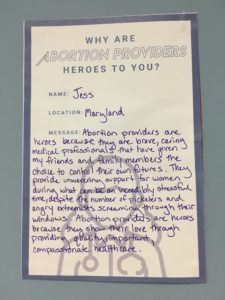 WHY ARE
ABORTION PROVIDERS
HEROES TO YOU?
NAME: Jess
LOCATION: Maryland
MESSAGE: Abortion providers are
heroes because they are brave, caring
medical professionals that have given
my friends and family members the
choice to control their own futures. They
provide unwavering support for women
during what can be an incredibly stressful
time, despite the number of picketers and
angry extremists screaming through their
windows. Abortion providers are heroes
because they show they care through
providing quality, important,
compassionate healthcare.